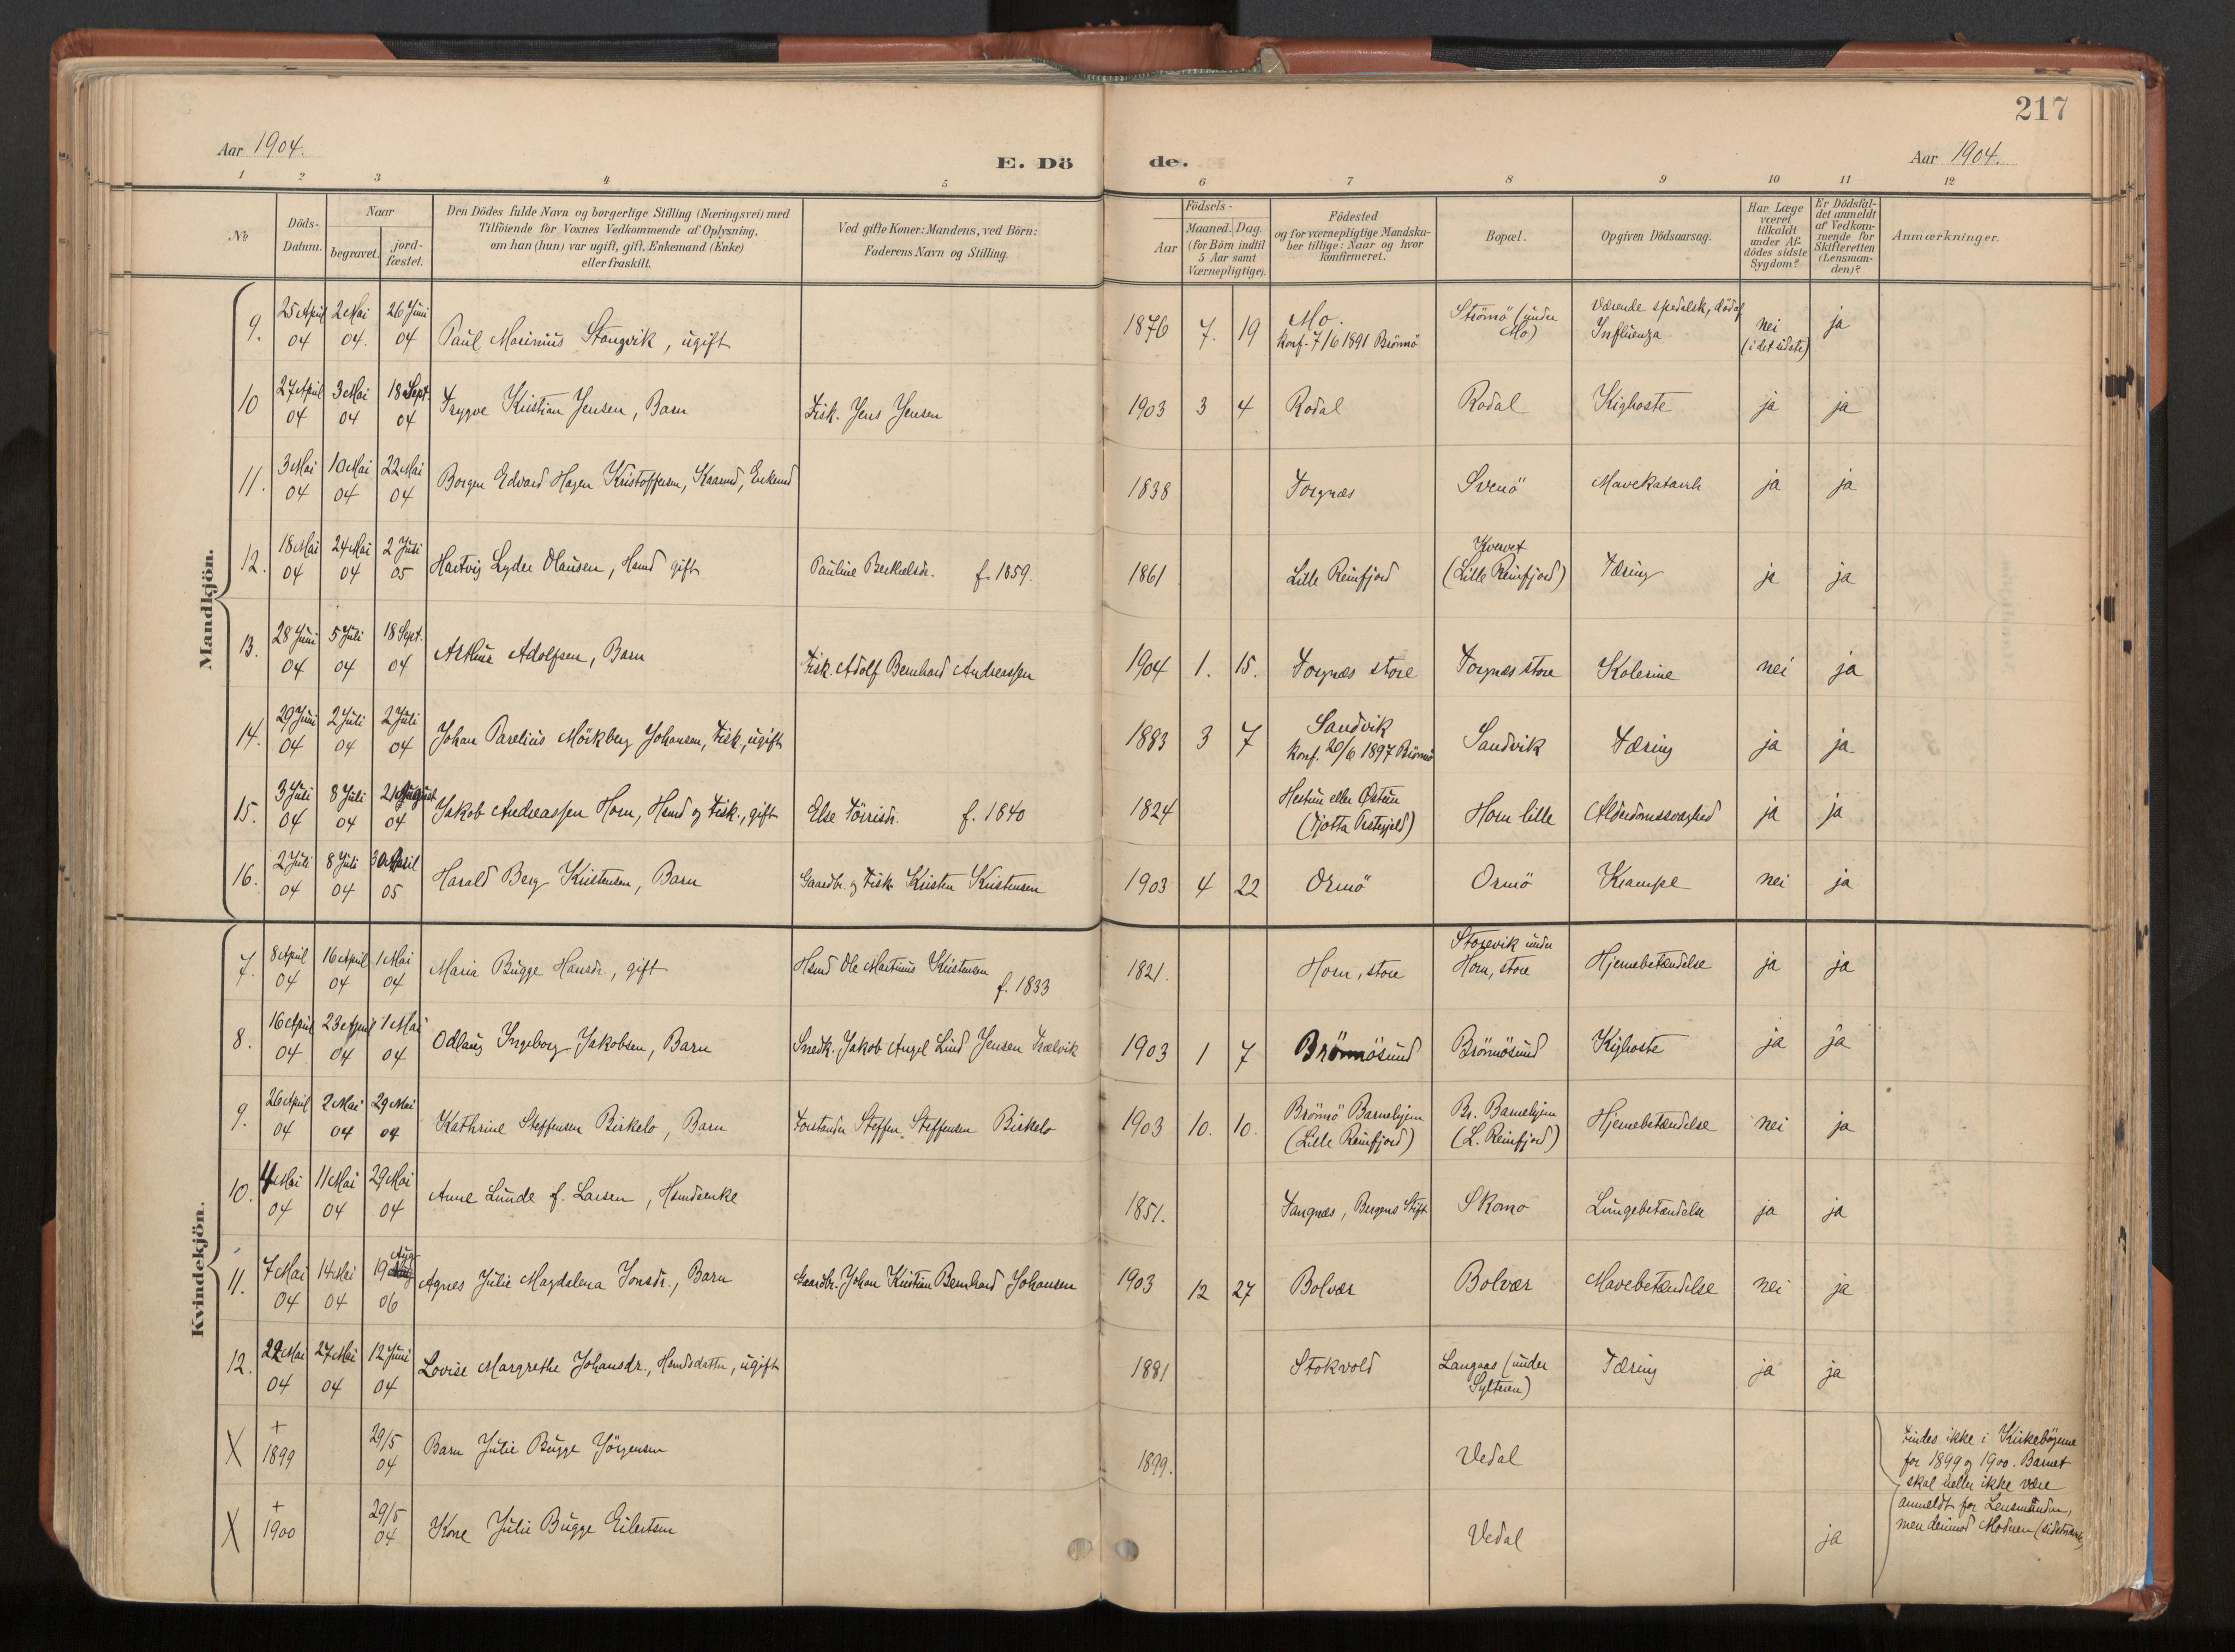 217
Aar 1904.
E. Dö de.
Aar 1904.
1 2 3 4 5 6 7 8 9 10 11 12
No
Döds-Datum.
Naar
begravet.
jord-fæstet.
Den Dödes fulde Navn og borgerlige Stilling (Næringsvei) med
Tilföiende for Voxnes Vedkommende af Oplysning,
om han (hun) var ugift, gift, Enkemand (Enke)
eller fraskilt.
Ved gifte Koner: Mandens, ved Börn:
Faderens Navn og Stilling.
Födsels-
Aar
Maaned. Dag.
(for Börn indtil
5 Aar samt
Værnepligtige).
Födested
og for værnepligtige Mandska-
ber tillige: Naar og hvor
konfirmeret.
Bopæl.
Opgiven Dödsaarsag.
Har Læge
været
tilkaldt
under Af-
dödes sidste
Sygdom?
Er Dödsfal-
det anmeldt
af Vedkom-
mende for
Skifteretten
(Lensman-
den)?
Anmærkninger.
Mandkjön.
9. 25 April 04 2 Mai 04. 26 Juni 04 Paul Marinius Stangvik, ugift 1876 7. 19 Mo. Konf. 7/6 1891 Brönnö Strömö (under Mo) Værende spedalsk, död af Influenza nei (i det sidste) ja
10 27 April 04 3 Mai 04 18 Sept. 04 Trygve Kristian Jensen, Barn Fisk. Jens Jensen 1903 3 4 Rodal Rodal Kighoste ja ja
11. 3 Mai 04 10 Mai 04 22 Mai 04 Borger Edvard Hagen Kristoffersen, Kaarmd, Enkemd 1838 Torgnæs Svenö Mavekatarrh ja ja
12. 18 Mai 04 24 Mai 04 2 Juli 05 Hartvig Lyder Olausen, Hsmd gift Pauline Berthelsdr. f. 1859. 1861 Lille Reinfjord Kvervet (Lille Reinfjord) Tæring ja ja
13. 28 Juni 04 5 Juli 04 18 Sept. 04 Arthur Adolfsen, Barn Fisk. Adolf Bernhard Andreassen 1904 1. 15. Torgnæs store Torgnæs store Kolerine nei ja
14. 29 Juni 04 2 Juli 04 2 Juli 04 Johan Parelius Mörkberg Johansen, Fisk., ugift 1883 3 7 Sandvik Konf. 20/6 1897 Brönnö Sandvik Tæring ja ja
15. 3 Juli 04 8 Juli 04 21 August 04 Jakob Andreassen Horn, Hsmd og Fisk., gift Else Törrisdr. f. 1840 1824 Hestun eller Østun (Tjötta Præstegjeld) Horn lille Alderdomssvaghed ja ja
16. 2 Juli 04 8 Juli 04 30 April 05 Harald Berg Kristensen, Barn Gaardbr. og Fisk. Kristen Kristensen 1903 4 22 Ormö Ormö Krampe nei ja
Kvindekjön.
7. 8 April 04 16 April 04 1 Mai 04 Maria Bugge Hansdr., gift Hsmd Ole Martinus Kristensen f. 1833 1821. Horn, store Storevik under Horn, store Hjernebetændelse ja ja
8. 16 April 04 23 April 04 1 Mai 04 Odlaug Ingeborg Jakobsen, Barn Snedk. Jakob Angel Lund Jensen Trælvik 1903 1 7 Brönnösund Brönnösund Kighoste ja ja
9. 26 April 04 2 Mai 04 29 Mai 04 Kathrine Steffensen Birkelo, Barn Forstander Steffen Steffensen Birkelo 1903 10. 10. Brönnö Barnehjem (Lille Reinfjord) Br. Barnehjem (L. Reinfjord) Hjernebetændelse nei ja
10. 4 Mai 04 11 Mai 04 29 Mai 04 Anne Lunde f. Larsen, Hsmdsenke 1851. Tangnæs, Bergens Stift Skomo Lungebetændelse ja ja
11. 7 Mai 04 14 Mai 04 19 Aug 06 Agnes Julie Magdalena Jonsdr., Barn Gaardbr. Johan Kristian Bernhard Johansen 1903 12 27 Bolvær Bolvær Mavebetændelse nei ja
12. 22 Mai 04 27 Mai 04 12 Juni 04 Lovise Margrethe Johansdr., Hsmdsdatter, ugift 1881 Stokvold Langaas (under Sylteren) Tæring ja ja
X + 1899 29/5 04 Barn Julie Bugge Jörgensen 1899. Vedal
X + 1900 29/5 04 Kone Julie Bugge Eilertsen Vedal ja
Findes ikke i Kirkebögerne
for 1899 og 1900. Barnet
skal heller ikke være
anmeldt for Lensmanden,
men derimod Moderen (sidstnævnte)